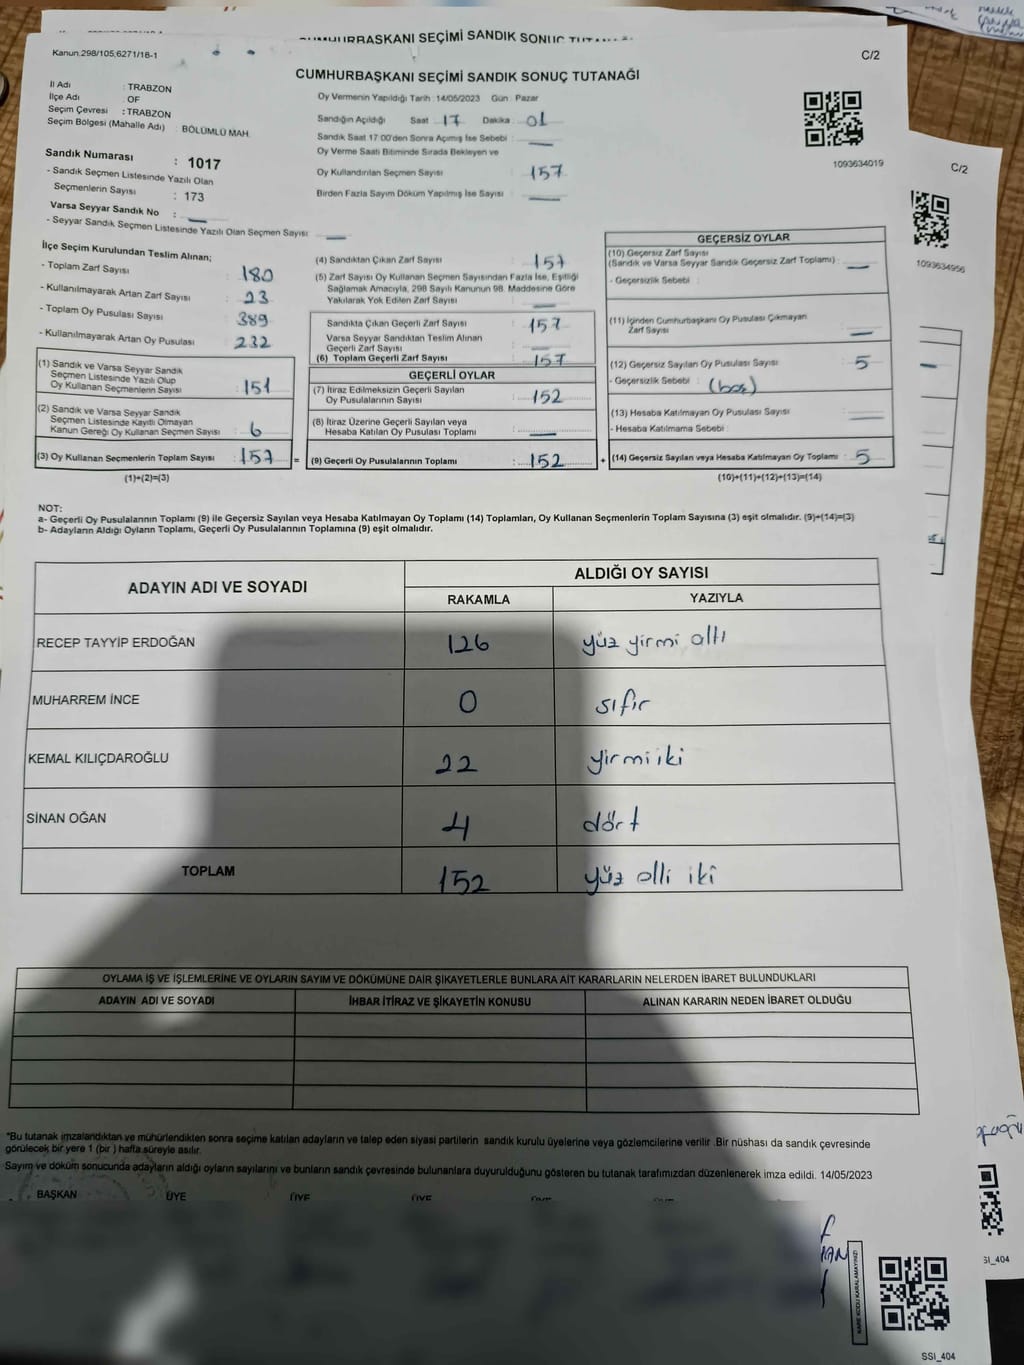 CUMHURBAŞKANI SEÇİMİ SANDIK SONUÇ
Kanun.298/105,6271/18-1
C/2
CUMHURBAŞKANI SEÇİMİ SANDIK SONUÇ TUTANAĞI
İl Adı : TRABZON
İlçe Adı : OF
Seçim Çevresi : TRABZON
Seçim Bölgesi (Mahalle Adı) : BÖLÜMLÜ MAH.
Sandık Numarası : 1017
- Sandık Seçmen Listesinde Yazılı Olan
Seçmenlerin Sayısı : 173
Varsa Seyyar Sandık No :
- Seyyar Sandık Seçmen Listesinde Yazılı Olan Seçmen Sayısı
Oy Vermenin Yapıldığı Tarih : 14/05/2023 Gün : Pazar
Sandığın Açıldığı Saat : 17 Dakika : 01
Sandık Saat 17:00'den Sonra Açımış İse Sebebi :
Oy Verme Saati Bitiminde Sırada Bekleyen ve
Oy Kullandırılan Seçmen Sayısı : 157
Birden Fazla Sayım Döküm Yapılmış İse Sayısı
1093634019
C/2
1093634956
İlçe Seçim Kurulundan Teslim Alınan;
- Toplam Zarf Sayısı : 180
- Kullanılmayarak Artan Zarf Sayısı : 23
- Toplam Oy Pusulası Sayısı : 389
- Kullanılmayarak Artan Oy Pusulası : 232
(1) Sandık ve Varsa Seyyar Sandık
Seçmen Listesinde Yazılı Olup
Oy Kullanan Seçmenlerin Sayısı : 151
(2) Sandık ve Varsa Seyyar Sandık
Seçmen Listesinde Kayıtlı Olmayan
Kanun Gereği Oy Kullanan Seçmen Sayısı : 6
(3) Oy Kullanan Seçmenlerin Toplam Sayısı : 157
(1)+(2)=(3)
(4) Sandıktan Çıkan Zarf Sayısı : 157
(5) Zarf Sayısı Oy Kullanan Seçmen Sayısından Fazla İse, Eşitliği
Sağlamak Amacıyla, 298 Sayılı Kanunun 98. Maddesine Göre
Yakılarak Yok Edilen Zarf Sayısı :
Sandıkta Çıkan Geçerli Zarf Sayısı : 157
Varsa Seyyar Sandıktan Teslim Alınan
Geçerli Zarf Sayısı :
(6) Toplam Geçerli Zarf Sayısı : 157
GEÇERLİ OYLAR
(7) İtiraz Edilmeksizin Geçerli Sayılan
Oy Pusulalarının Sayısı : 152
(8) İtiraz Üzerine Geçerli Sayılan veya
Hesaba Katılan Oy Pusulası Toplamı :
= (9) Geçerli Oy Pusulalarının Toplamı : 152 +
GEÇERSİZ OYLAR
(10) Geçersiz Zarf Sayısı
(Sandık ve Varsa Seyyar Sandık Geçersiz Zarf Toplamı) :
- Geçersizlik Sebebi :
(11) İçinden Cumhurbaşkanı Oy Pusulası Çıkmayan
Zarf Sayısı
(12) Geçersiz Sayılan Oy Pusulası Sayısı : 5
- Geçersizlik Sebebi : (boş)
(13) Hesaba Katılmayan Oy Pusulası Sayısı :
- Hesaba Katılmama Sebebi :
(14) Geçersiz Sayılan veya Hesaba Katılmayan Oy Toplamı : 5
(10)+(11)+(12)+(13)=(14)
NOT:
a- Geçerli Oy Pusulalarının Toplamı (9) ile Geçersiz Sayılan veya Hesaba Katılmayan Oy Toplamı (14) Toplamları, Oy Kullanan Seçmenlerin Toplam Sayısına (3) eşit olmalıdır. (9)+(14)=(3)
b- Adayların Aldığı Oyların Toplamı, Geçerli Oy Pusulalarının Toplamına (9) eşit olmalıdır.
ADAYIN ADI VE SOYADI
ALDIĞI OY SAYISI
RAKAMLA YAZIYLA
RECEP TAYYİP ERDOĞAN 126 yüz yirmi altı
MUHARREM İNCE 0 sıfır
KEMAL KILIÇDAROĞLU 22 yirmi iki
SİNAN OĞAN 4 dört
TOPLAM 152 yüz elli iki
OYLAMA İŞ VE İŞLEMLERİNE VE OYLARIN SAYIM VE DÖKÜMÜNE DAİR ŞİKAYETLERLE BUNLARA AİT KARARLARIN NELERDEN İBARET BULUNDUKLARI
ADAYIN ADI VE SOYADI İHBAR İTİRAZ VE ŞİKAYETİN KONUSU ALINAN KARARIN NEDEN İBARET OLDUĞU
*Bu tutanak imzalandıktan ve mühürlendikten sonra seçime katılan adayların ve talep eden siyasi partilerin sandık kurulu üyelerine veya gözlemcilerine verilir .Bir nüshası da sandık çevresinde
görülecek bir yere 1 (bir ) hafta süreyle asılır.
Sayım ve döküm sonucunda adayların aldığı oyların sayılarını ve bunların sandık çevresinde bulunanlara duyurulduğunu gösteren bu tutanak tarafımızdan düzenlenerek imza edildi. 14/05/2023
BAŞKAN ÜYE ÜYE ÜYE ÜYE
KARE KODU KARALAMAYINIZ!
SSI_404
SI_404